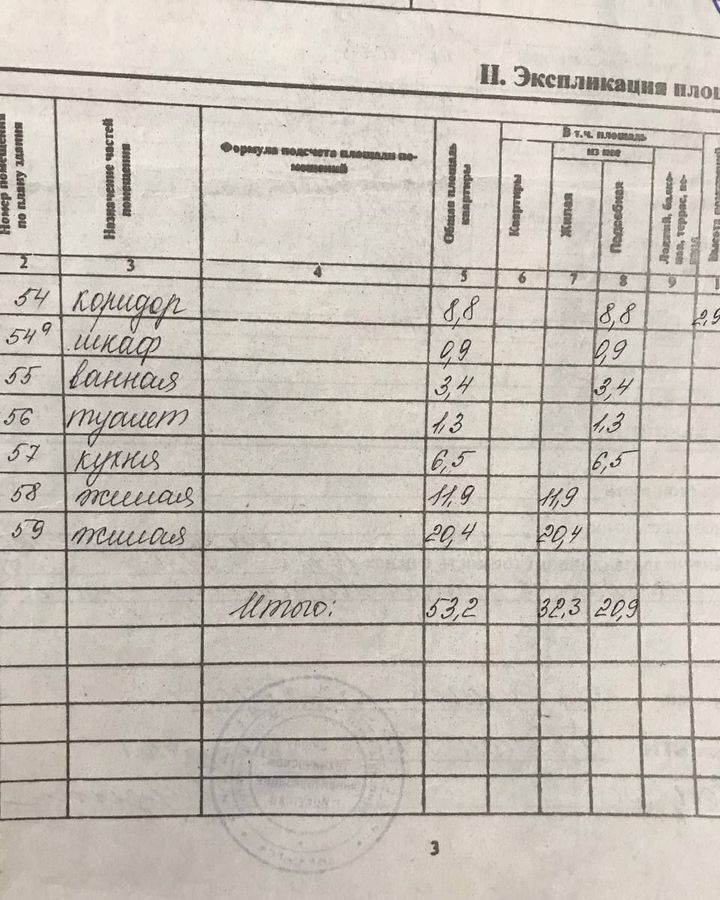 II. Экспликация площ
Номер помещения по плану здания
Назначение частей помещения
Формула подсчета площади по-
мещений
Общая площадь квартиры
В т.ч. площадь
из нее
Квартиры
Жилая
Подсобная
Лоджий, балко-
нов, террас, ве-
ранд
Высота помещений
2 3 4 5 6 7 8 9 1
54 коридор 8,8 8,8 2,9
54а шкаф 0,9 0,9
55 ванная 3,4 3,4
56 туалет 1,3 1,3
57 кухня 6,5 6,5
58 жилая 11,9 11,9
59 жилая 20,4 20,4
Итого: 53,2 32,3 20,9
3